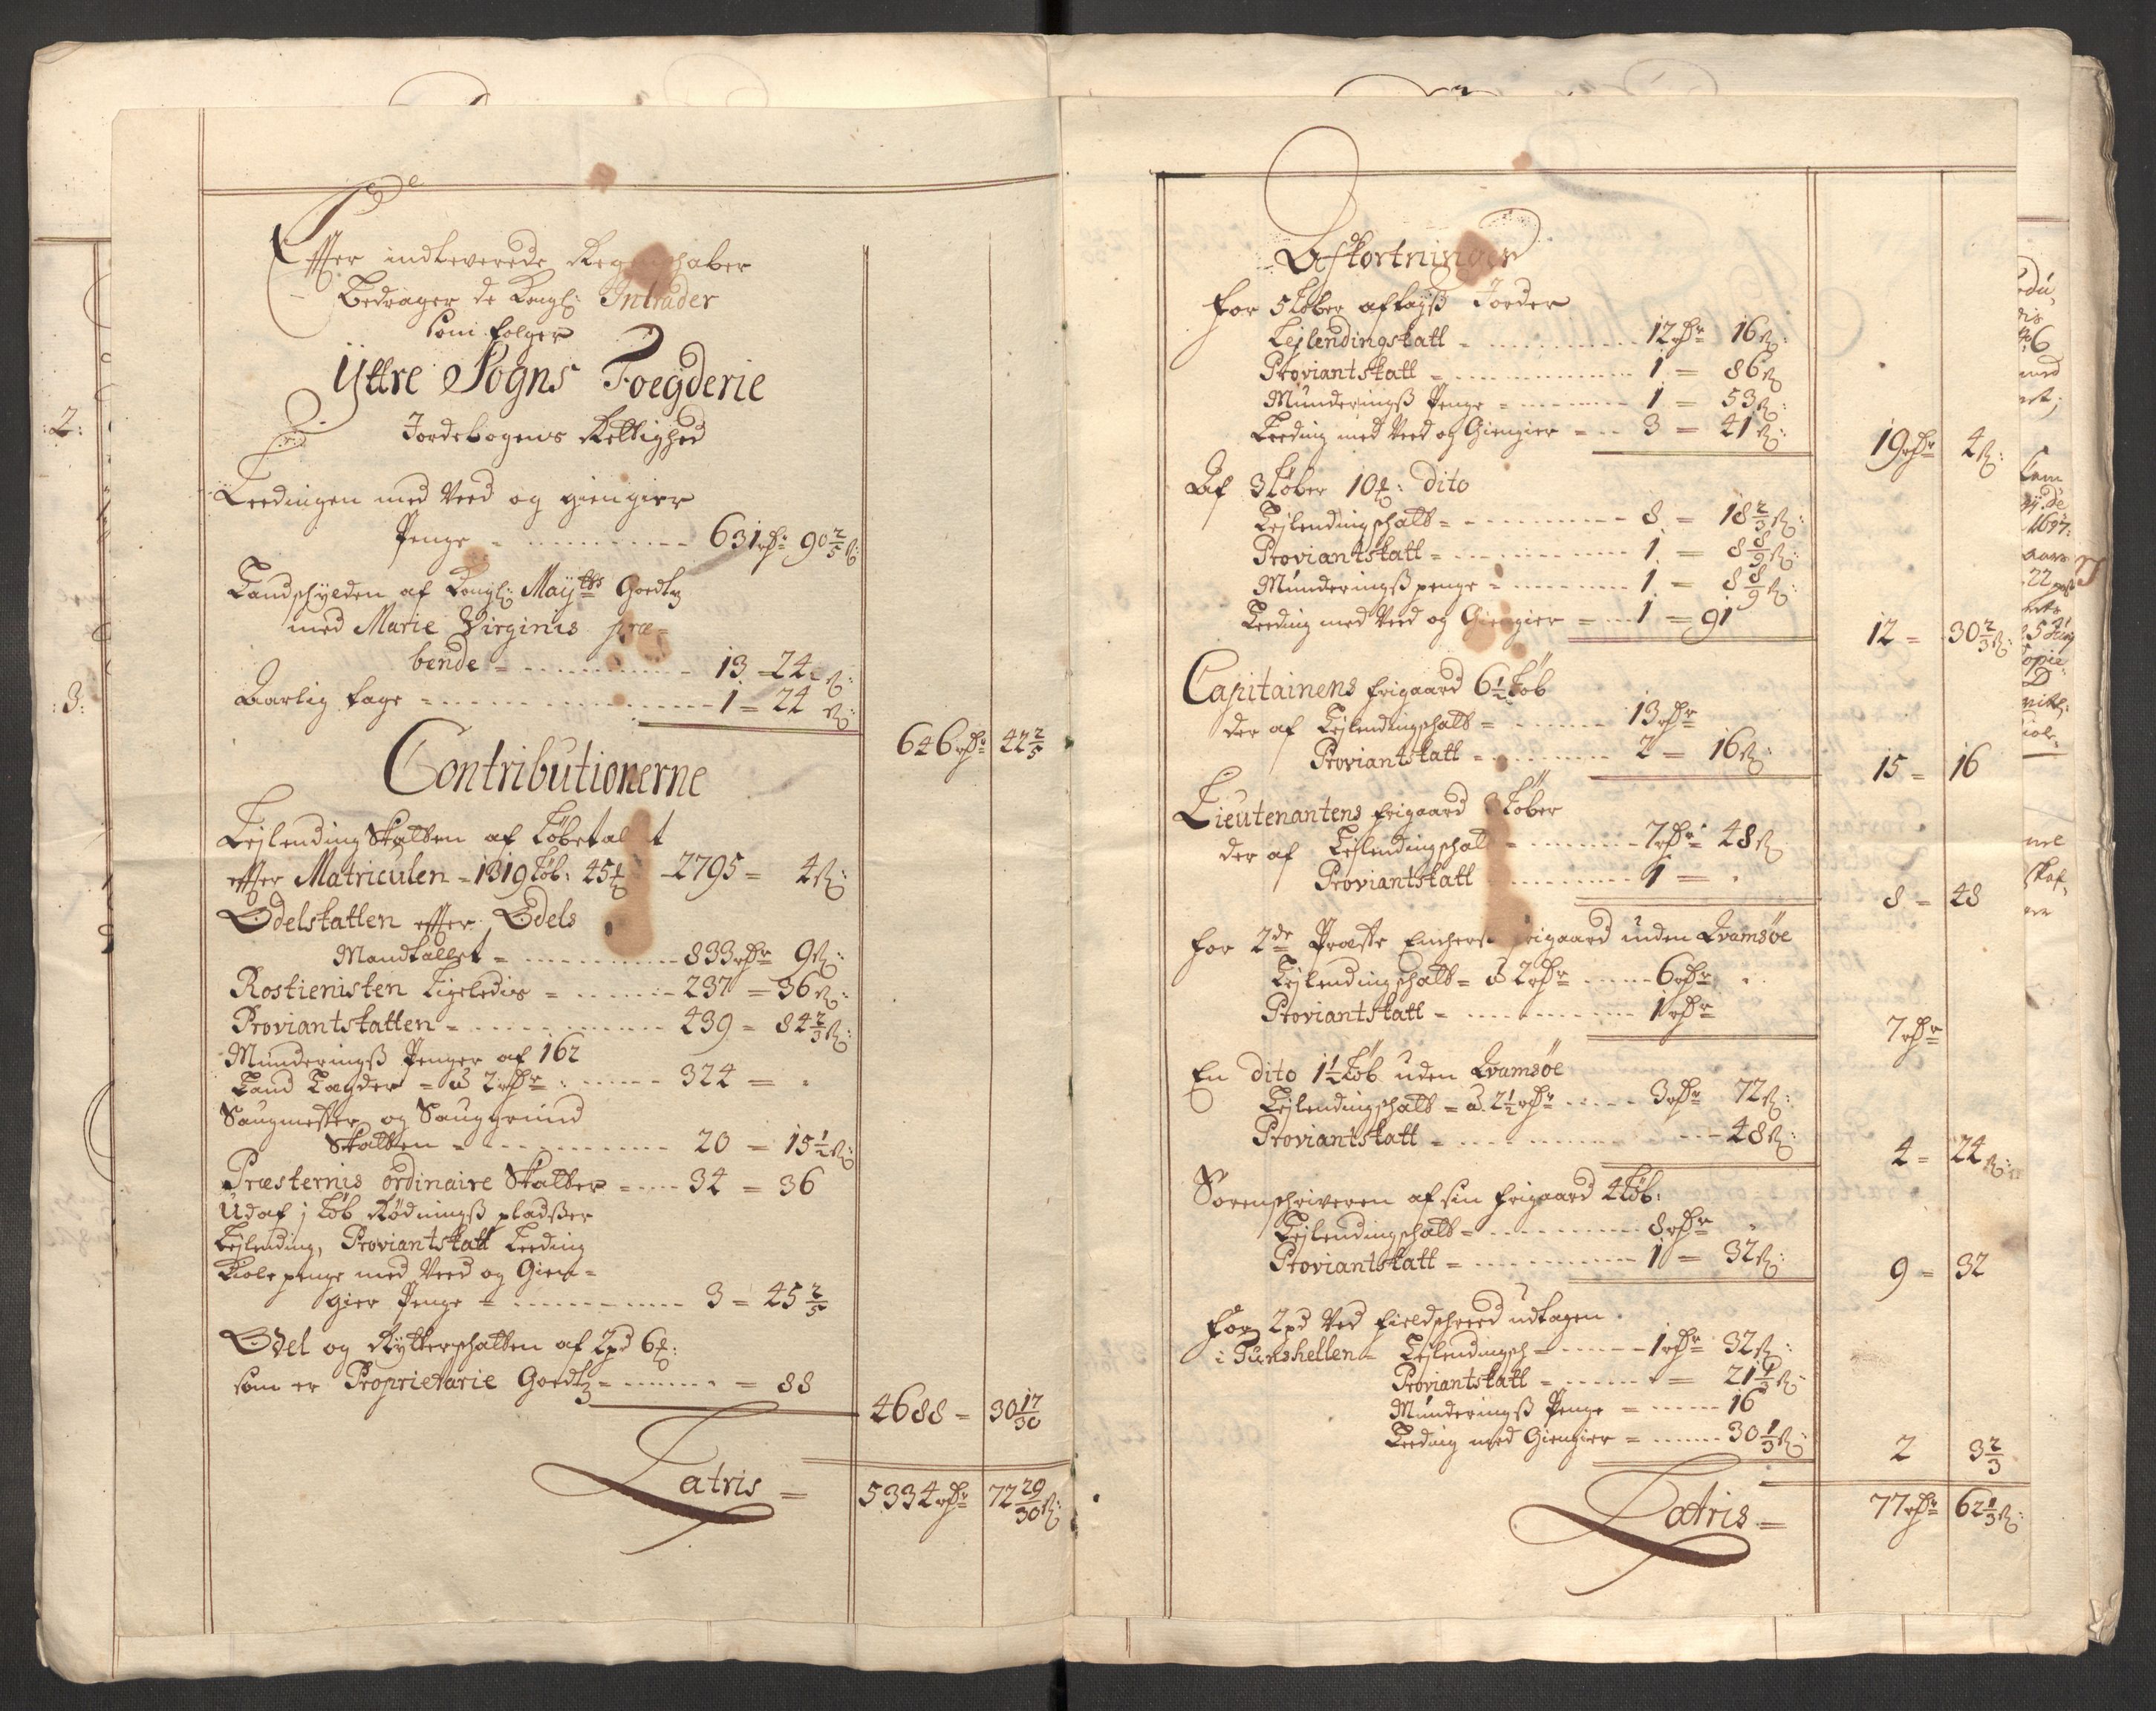 Effter indleverede Regenschaber
Bedrager de Kongl: Intrader
som følger
Ÿttre Sogns Foegderie
Jordebogens Rettighed
Leedingen med Veed og giengier
Penge = 631 rdr 90 2/5 ß
Landschylden af Kongl: Mayts Goedtz
med Marie Virginis præ-
bende = 13 = 24 ß:
Aarlig tage = 1 = 24 ß:
646 rdr 42 2/5
Contributionerne
Leylending Skatten af Løbetallet
effter Matriculen = 1319 Løb: 45 - 2795 = 4 ß:
Odelskatten effter Odels
Mandtallet = 833 rdr 9 ß:
Rostienisten Ligeledis = 237 = 36 ß:
Proviantskatten = 439 = 84 2/3 ß:
Munderingß Penger af 162
Land Lægder = a 2 rdr: 324 =
Saugmester og Sauggrund
Skatten = 20 = 15 1/2 ß:
Præsternis ordinaire Skatter = 34 = 36
Udaf j Løb Rødningß pladßer
Leylending, Proviantskatt Leeding
Kole penge med Veed og Gien=
gier Penge = 3 = 45 2/5
Odel og Rytterschatten af 2 pd 6
som er Proprietarie Goedtz = 88
4688 = 30 17/30
Latris = 5334 rdr 72 29/30 ß:
Afkortninger
for 5 Løber aftagß Jorder
Leylendingskatt = 12 rdr 16 ß:
Proviantskatt = 1 = 86 ß
Munderingß Penge = 1 = 53 ß:
Leeding med Veed og Giengier = 3 = 41 ß:
19 rdr 4 ß:
Af 3 Løber 10 : dito
Leylendingschatt = 8 = 18 2/3 ß:
Proviantskatt = 1 = 8 8/9 ß:
Munderingß penge = 1 = 8 8/9 ß:
Leeding med Veed og Giengier = 1 = 91
12 = 30 2/3 ß:
Capitainens frigaard 6 1/2 Løb
der af Leylendingschatt = 13 rdr
Proviantskatt = 2 = 16 ß:
15 = 16
Lieutenantens frigaard 3 Løber
der af Leylendingschatt = 7 rdr 48 ß
Proviantskatt 1 =
8 = 48
for 2de Præste Encherß frigaard inden Qvamsøe
Leylendingschatt = a 2 rdr 6 rdr
Proviantskatt = 1 rdr
7 rdr
En dito 1 1/2 Løb uden Qvamsøe
Leylendingschatt = a 2 1/2 rdr 3 rdr 72 ß:
Proviantskatt = 48 ß:
4 = 24 ß:
Sorenschriveren af sin frigaard 4 Løb:
Leylendingschatt = 8 rdr
Proviantskatt = 1 = 32 ß:
9 = 32
for 2 pd Ved fieldschreed udtagen
i Tunshellen = Leylendingsch = 1 rdr 32 ß:
Proviantskatt = 21 1/3 ß:
Munderingß Penge = 16
Leeding med Giengier = 30 1/3 ß:
2 3 2/3
Latris = 77 rdr 62 1/3 ß:
:2:
:3: